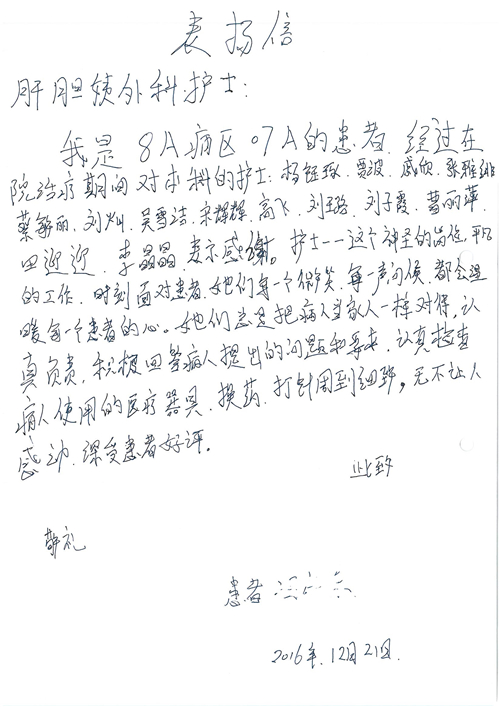 表扬信
肝胆胰外科护士:
我是8A病区07A的患者,经过在
院治疗期间对本科的护士:杨钰琢、贾波、戚欣、张雅维
蔡敏丽、刘灿、吴雪洁、宋辉辉、高飞、刘玉璐、刘子霞、曹丽萍、
田迎迎、李晶晶、表示感谢。护士--这个神圣的岗位,平凡
的工作,时刻面对患者,她们每一个微笑,每一声问候,都会温
暖每一个患者的心。她们总是把病人当家人一样对待,认
真负责,积极回答病人提出的问题和要求,认真检查
病人使用的医疗器具,换药、打针周到细致,无不让人
感动,深受患者好评。
此致
敬礼
患者
2016年.12月21日.